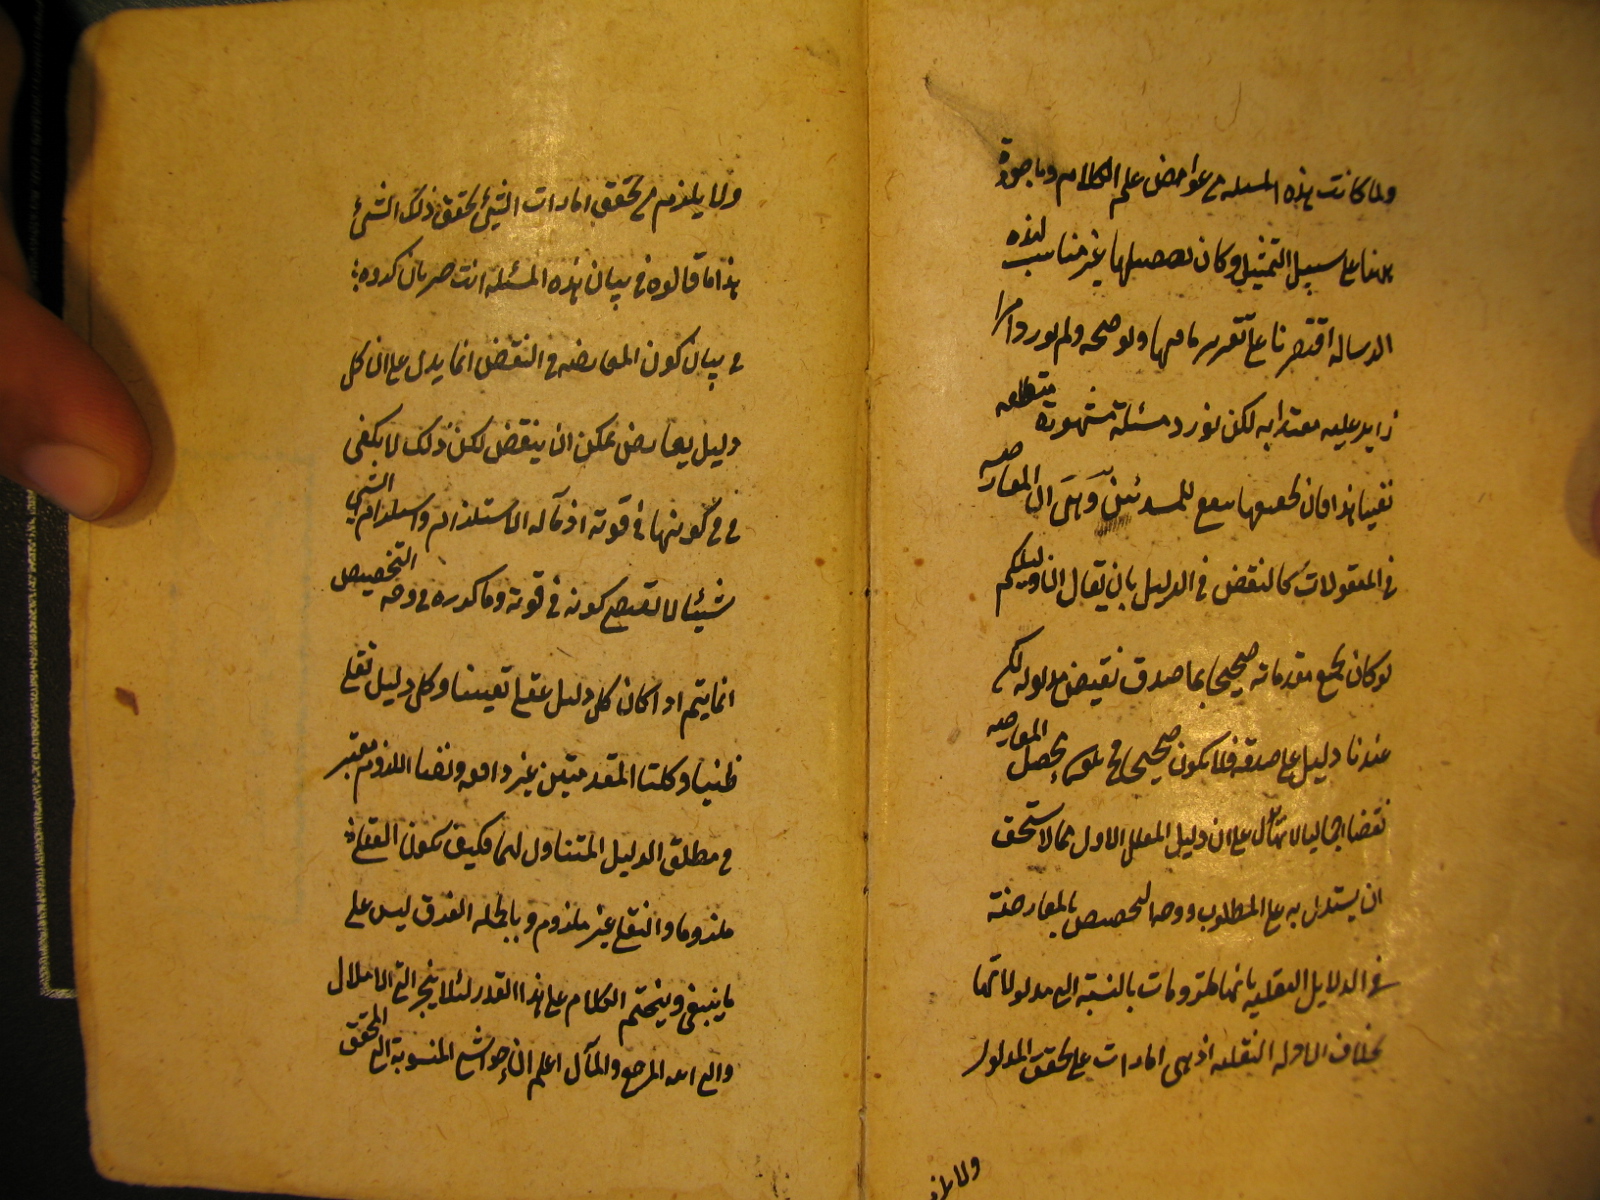 ولما كانت هذه المسئله من غوامض علم الكلام وما جوزة
ههنا على سبيل التمثيل وكان تفصيلها غير مناسب لهذه
الرسالة اقتصرنا على تقرير ما فيها وتوضيحه ولم نورد امرا
زايد عليه معتدا به لكن نورد مسئلة مشهورة متعلقه
نفيا هذا فان تحقيقها ينفع للمبتدئين وهى ان المعارضه
فى المعقولات كالنقض فى الدليل بان يقال ان دليلكم
لو كان بجميع مقدماته صحيحا لما صدق نقيض مدلوله لكن
عندنا دليل على صدقه فلا يكون صحيحا يحصل المعارضه
نقضا اجماليا لانه دال على ان دليل المعلل الاول مما لا يستحق
ان يستدل به على المطلوب ووجه التخصيص بالمعارضة
فى الدلايل العقليه بانها ملزومات بالنسبة الى مدلولاتها
بخلاف الادله النقليه اذ هى امارات على تحقق المدلول
ولا يلز
ولا يلزم من تحقق امارات الشئ تحقق ذلك الشئ
هذا ما قالوه فى بيان هذه المسئله انت خبير بان ما ذكروه
فى بيان كون المعارضه فى النقض انما يدل على ان كل
دليل يعارض يمكن ان ينقض لكن ذلك لا يكفى
فى كونها فى قوته اذ مآله الاستلزام واستلزام الشئ
شيئا لا يقتضى كونه فى قوته وما ذكروه فى وجه التخصيص
انما يتم اذا كان كل دليل عقلى يقينيا وكل دليل نقلى
ظنيا وكلتا المقدمتين غير واقعه وايضا اللزوم معتبر
فى مطلق الدليل المتناول لهما فكيف يكون العقلى
ملزوما والنقلى غير ملزوم وبالجمله الفرق ليس على
ما ينبغى وليختتم الكلام على هذا القدر لئلا ينجر الى الاملال
والى الله المرجع والمآل اعلم ان حواشى المنسوبة الى المحقق